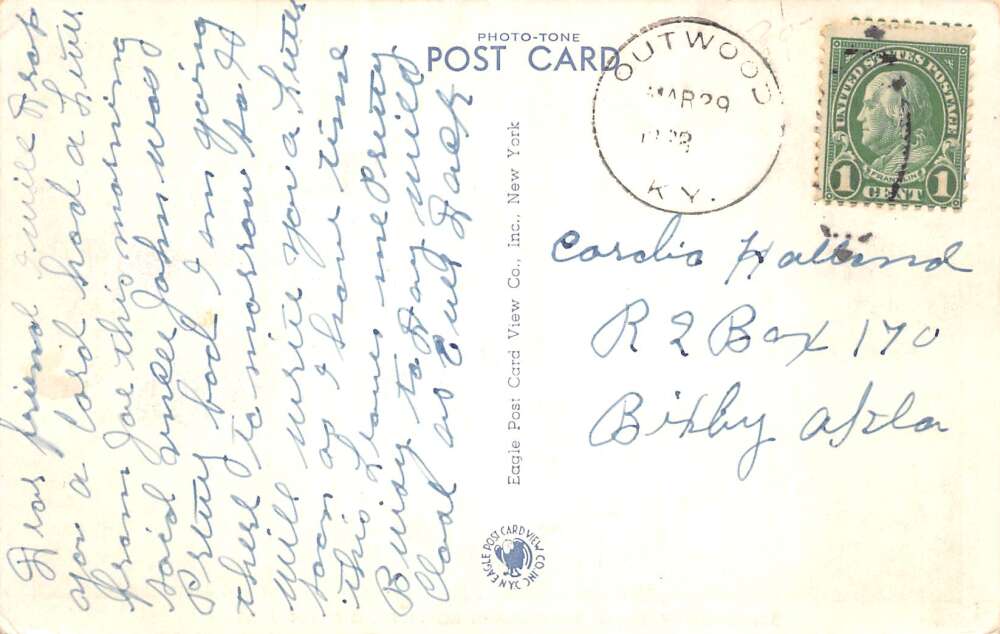 Dear friend I will drop
you a card had a letter
from Joe this morning
said uncle John was
Pretty bad I am going
there to morrow so I
will write you a letter
soon as I have time
this leaves me Pretty
Buisy to day will
Close as Ever Jack
PHOTO-TONE
POST CARD
Eagle Post Card View Co., Inc., New York
AN EAGLE POST CARD VIEW CO. INC.
OUTWOOD
MAR 29
KY.
UNITED STATES POSTAGE
FRANKLIN
1 CENT 1
Cordie Holland
R 2 Box 170
Bixby Okla